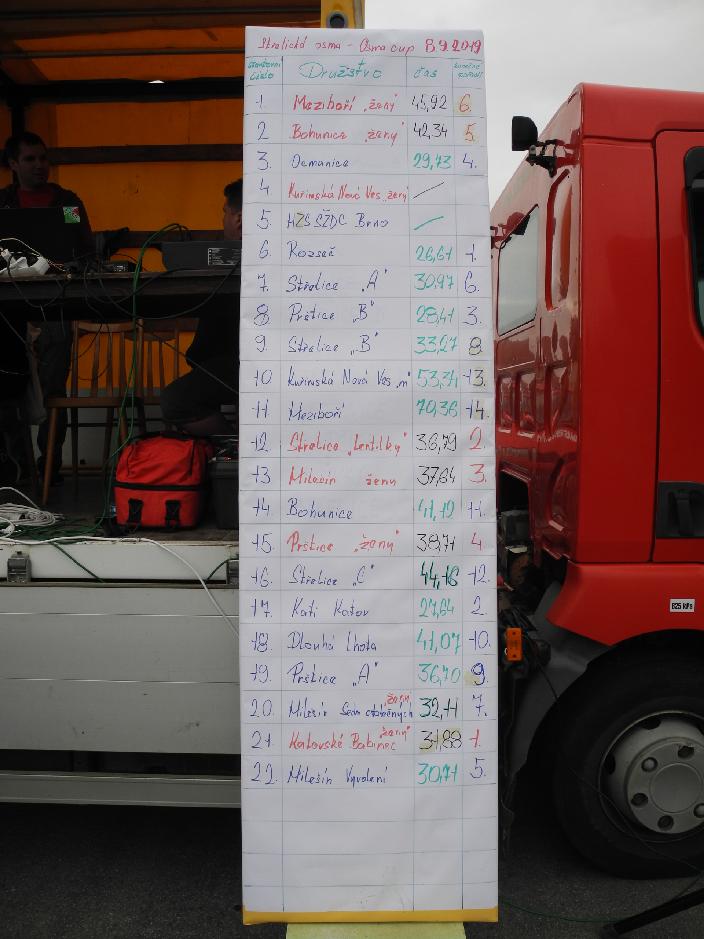 Střelická osma - Osma cup 8.9.2019
Startovní číslo Družstvo čas konečné pořadí
1. Meziboří „ženy" 45,92 6.
2 Bohunice „ženy" 42,34 5.
3. Ocmanice 29,73 4.
4 Kuřimská Nová Ves „ženy" /
5. HZS SŽDC Brno /
6. Rozseč 26,61 1.
7. Střelice „A" 30,97 6.
8 Prštice „B" 28,41 3.
9. Střelice „B" 33,27 8.
10 Kuřimská Nová Ves „m" 53,31 13.
11 Meziboří 70,36 14.
12. Střelice „Lentilky" 36,79 2.
13 Milešín ženy 37,64 3.
14. Bohunice 41,12 11.
15. Prštice „ženy" 38,71 4
16. Střelice „C" 44,16 12.
17. Kati Katov 27,64 2.
18. Dlouhá Lhota 41,07 10.
19. Prštice „A" 36,70 9.
20. Milešín 32,11 7.
21. Katovské Babinec „ženy" 31,88 1.
22. Milešín Vyvolení 30,71 5.
825 kPa